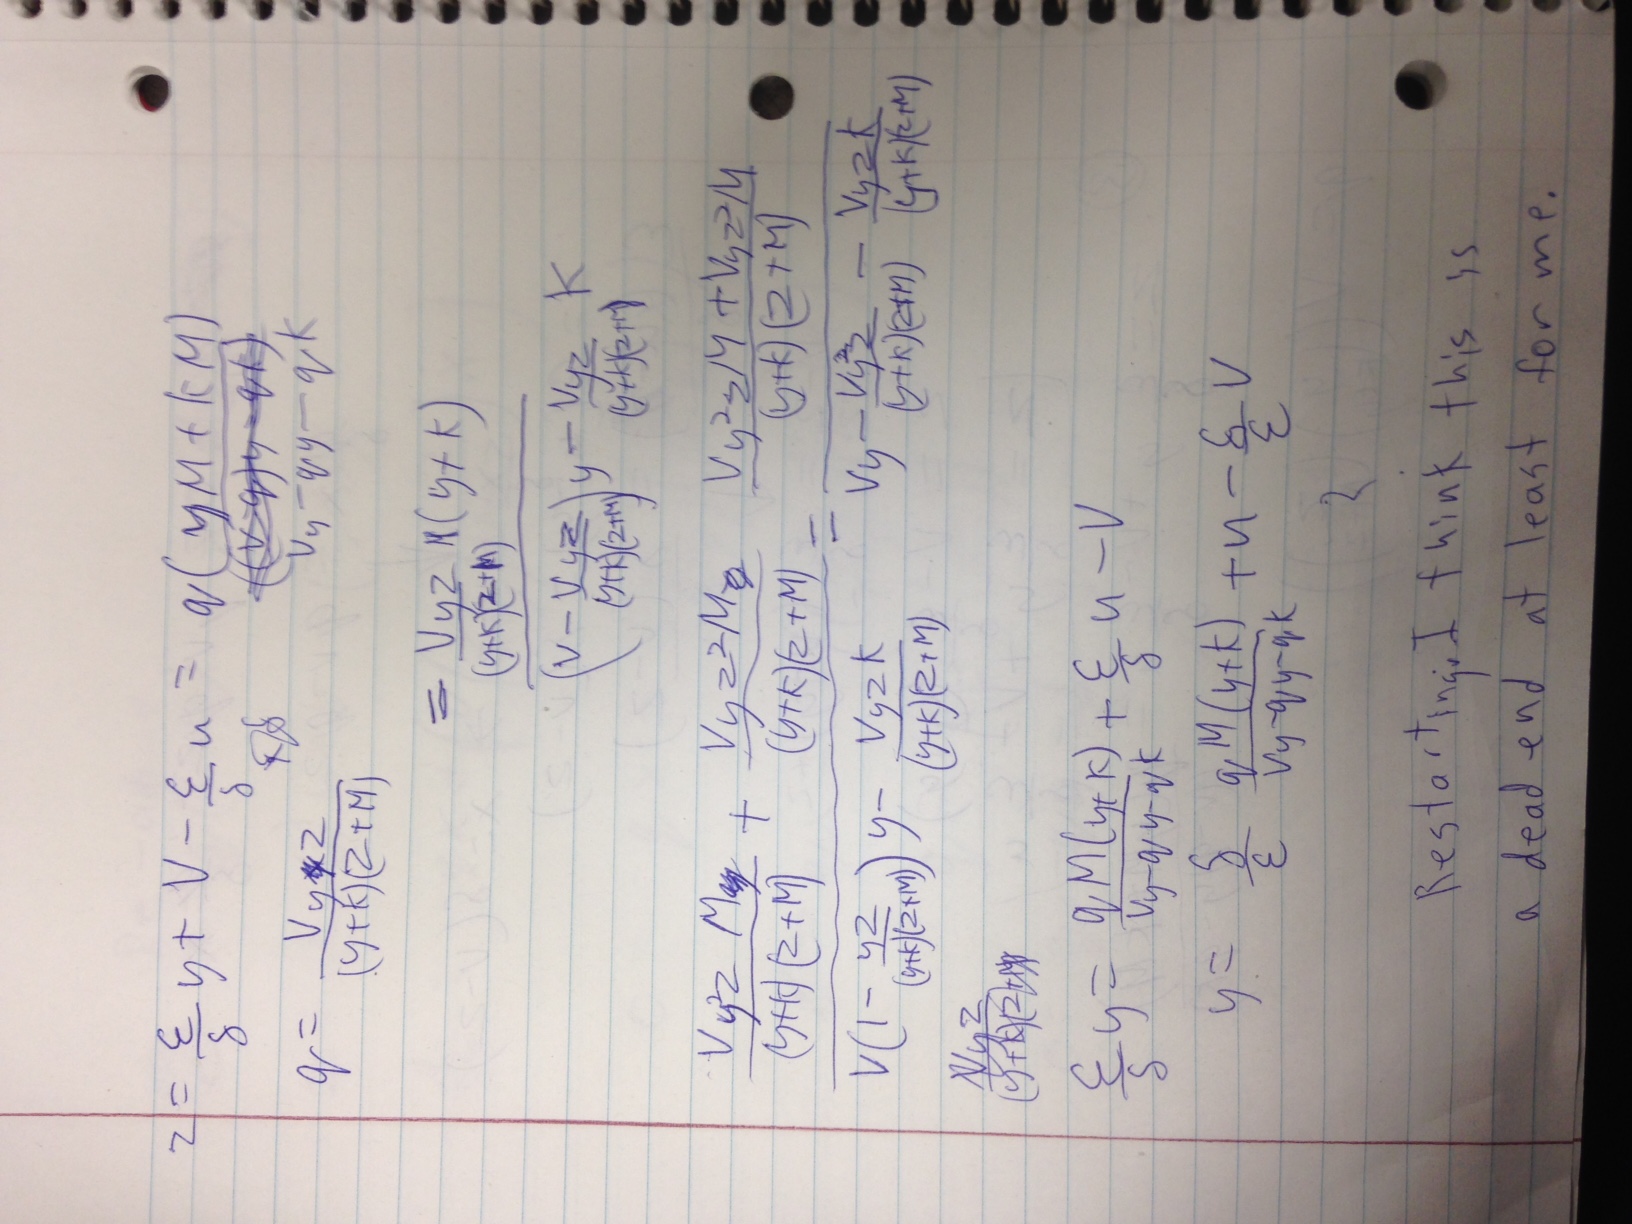 z = ε/δ y + v - ε/δ u = q( (yM + kM) / (Vy - qy - qk)
q = Vyz / (y+k)(z+M)
= Vyz/((y+k)(z+M)) M(y+k) / (V - Vyz/((y+k)(z+M)))y - Vyz/((y+k)(z+M)) k
Vy²z M/((y+k)(z+M)) + Vyz²M/((y+k)(z+M)) / V(1 - yz/((y+k)(z+M)))y - Vyzk/((y+k)(z+M)) = (Vy²zM + Vyz²M)/((y+k)(z+M)) / Vy - Vy²z/((y+k)(z+M)) - Vyzk/((y+k)(z+M))
Vyz/((y+k)(z+M))
ε/δ y = qM(y+k)/(Vy-qy-qk) + ε/δ u - v
y = δ/ε qM(y+k)/(Vy-qy-qk) + u - δ/ε v
}
Restarting, I think this is
a dead end at least for me.